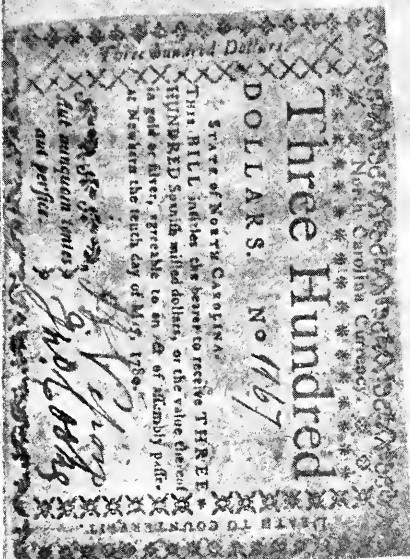 Three Hundred Dollars.
North Carolina Currency.
Three Hundred
DOLLARS. No 1167
STATE of NORTH CAROLINA.
THIS BILL intitles the bearer to receive THREE
HUNDRED Spanish milled dollars, or the value thereof
in gold or silver, agreeable to an act of assembly pass-
at Newbern the tenth day of May, 1780.
Aut nunquam tentes
aut perfice
DEATH TO COUNTERFEIT.